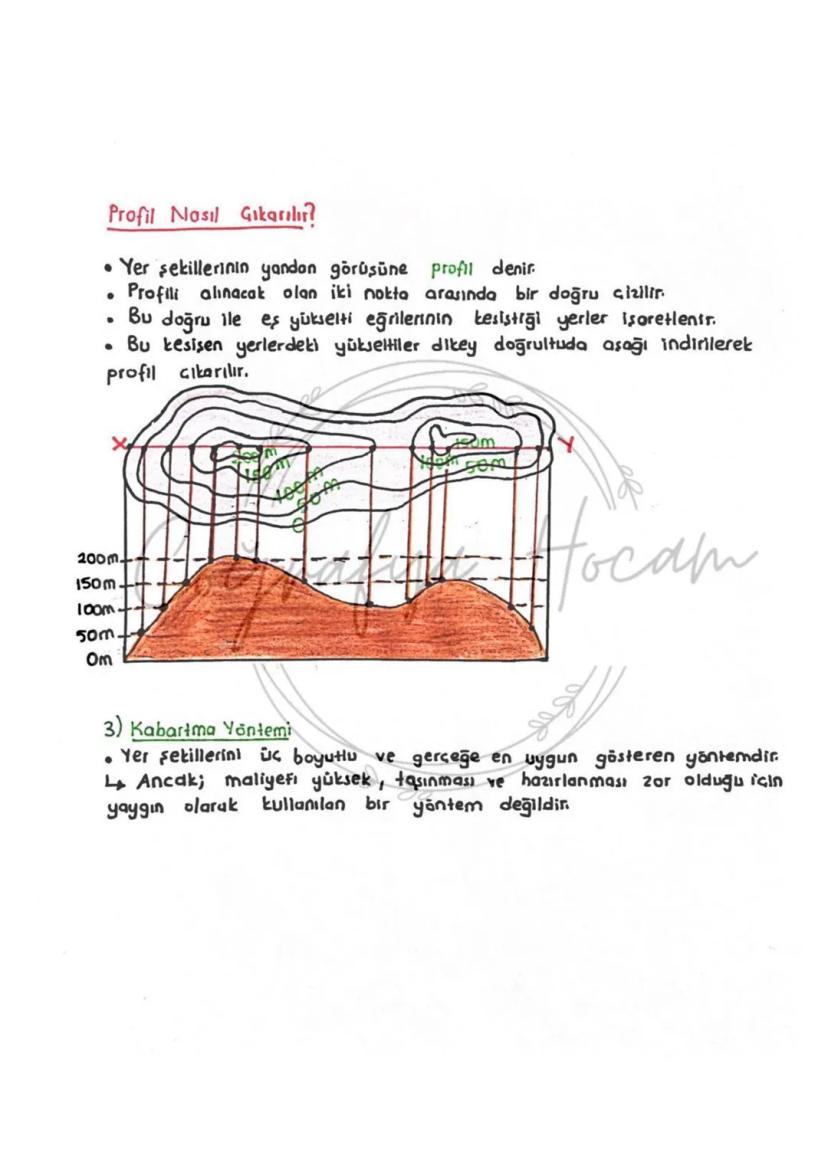 Profil Nasıl Çıkarılır?
• Yer şekillerinin yandan görüşüne profil denir.
• Profili alınacak olan iki nokta arasında bir doğru çizilir.
• Bu doğru ile eş yükselti eğrilerinin kesiştiği yerler işaretlenir.
• Bu kesişen yerlerdeki yükseltiler dikey doğrultuda aşağı indirilerek
profil çıkarılır.
X Y
200m 150m
150m 100m 50m
100m
50m
0
Coğrafya Hocam
200m
150m
100m
50m
0m
3) Kabartma Yöntemi
• Yer şekillerini üç boyutlu ve gerçeğe en uygun gösteren yöntemdir.
↳ Ancak; maliyeti yüksek, taşınması ve hazırlanması zor olduğu için
yaygın olarak kullanılan bir yöntem değildir.